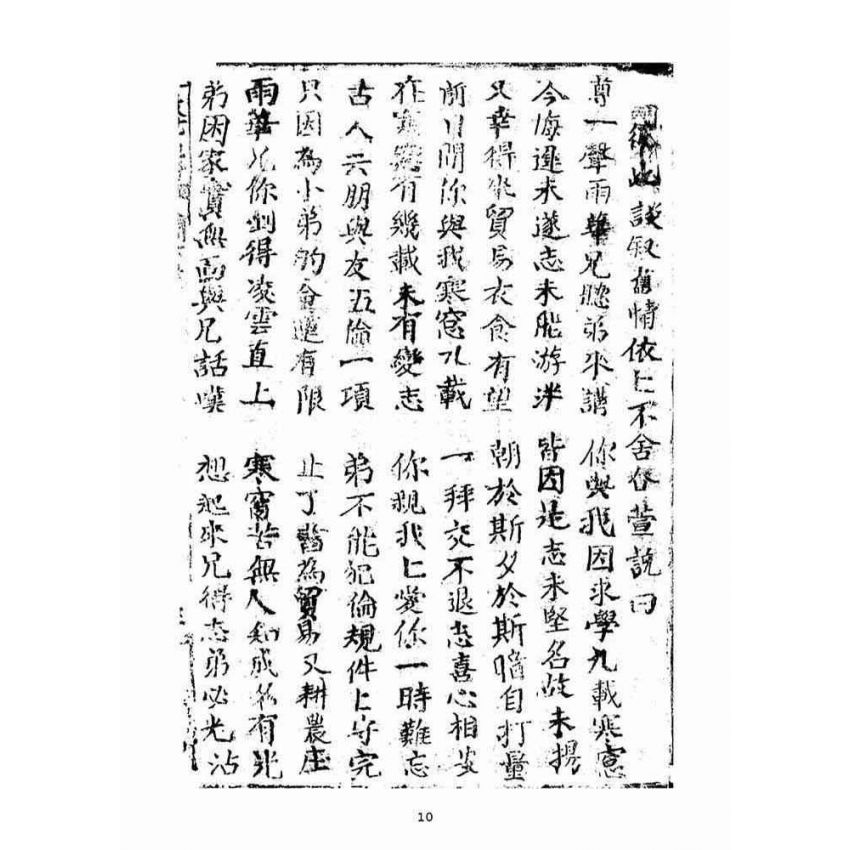 從此談叙旧情依匕不舍春萱說曰
尊一聲雨華兄聽弟來講 你與我因求學九載寒窓
今悔進未遂志未能游泮 皆因是志未堅名故未揚
又幸得來貿易衣食有望 朝於斯夕於斯暗自打量
前日間你與我寒窓九載 一拜交不退志喜心相安
在寒窓有幾載未有變志 你親我匕愛你一時難忘
古人云朋與友五倫一項 弟不能犯倫規件匕守完
只因為小弟的會遷有限 止了醫為貿易又耕農庄
雨華兄你到得凌雲直上 寒窗苦無人知成名有光
弟因家貧無面與兄話嘆 想起來兄得志弟必光沾
10